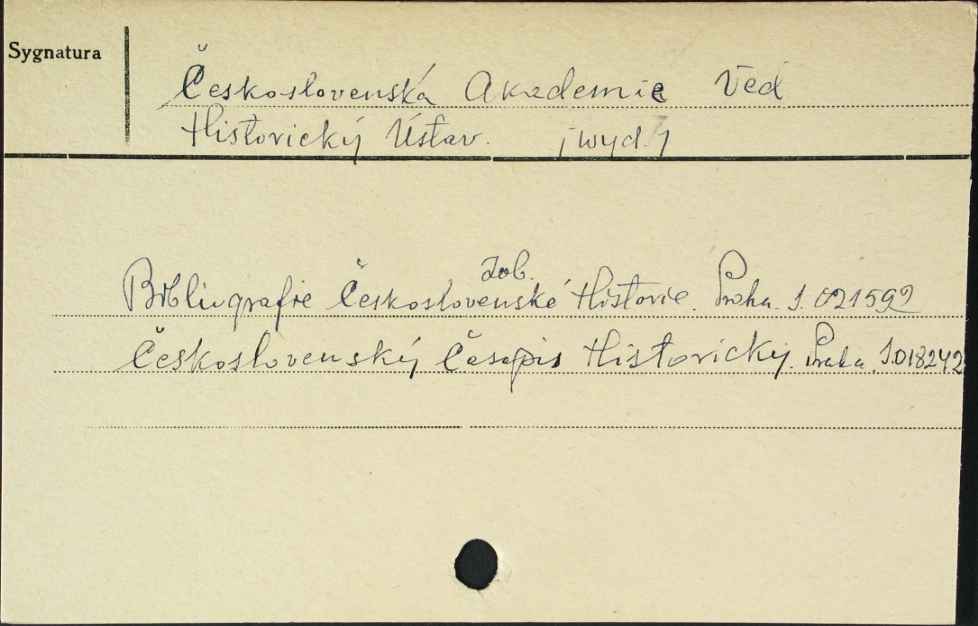 Sygnatura
Československá Akademie Věd
Historický Ústav. /wyd./
Zob.
Bibliografie Československé Historie. Praha. S. 021592
Československý Časopis Historický. Praha. S.018242